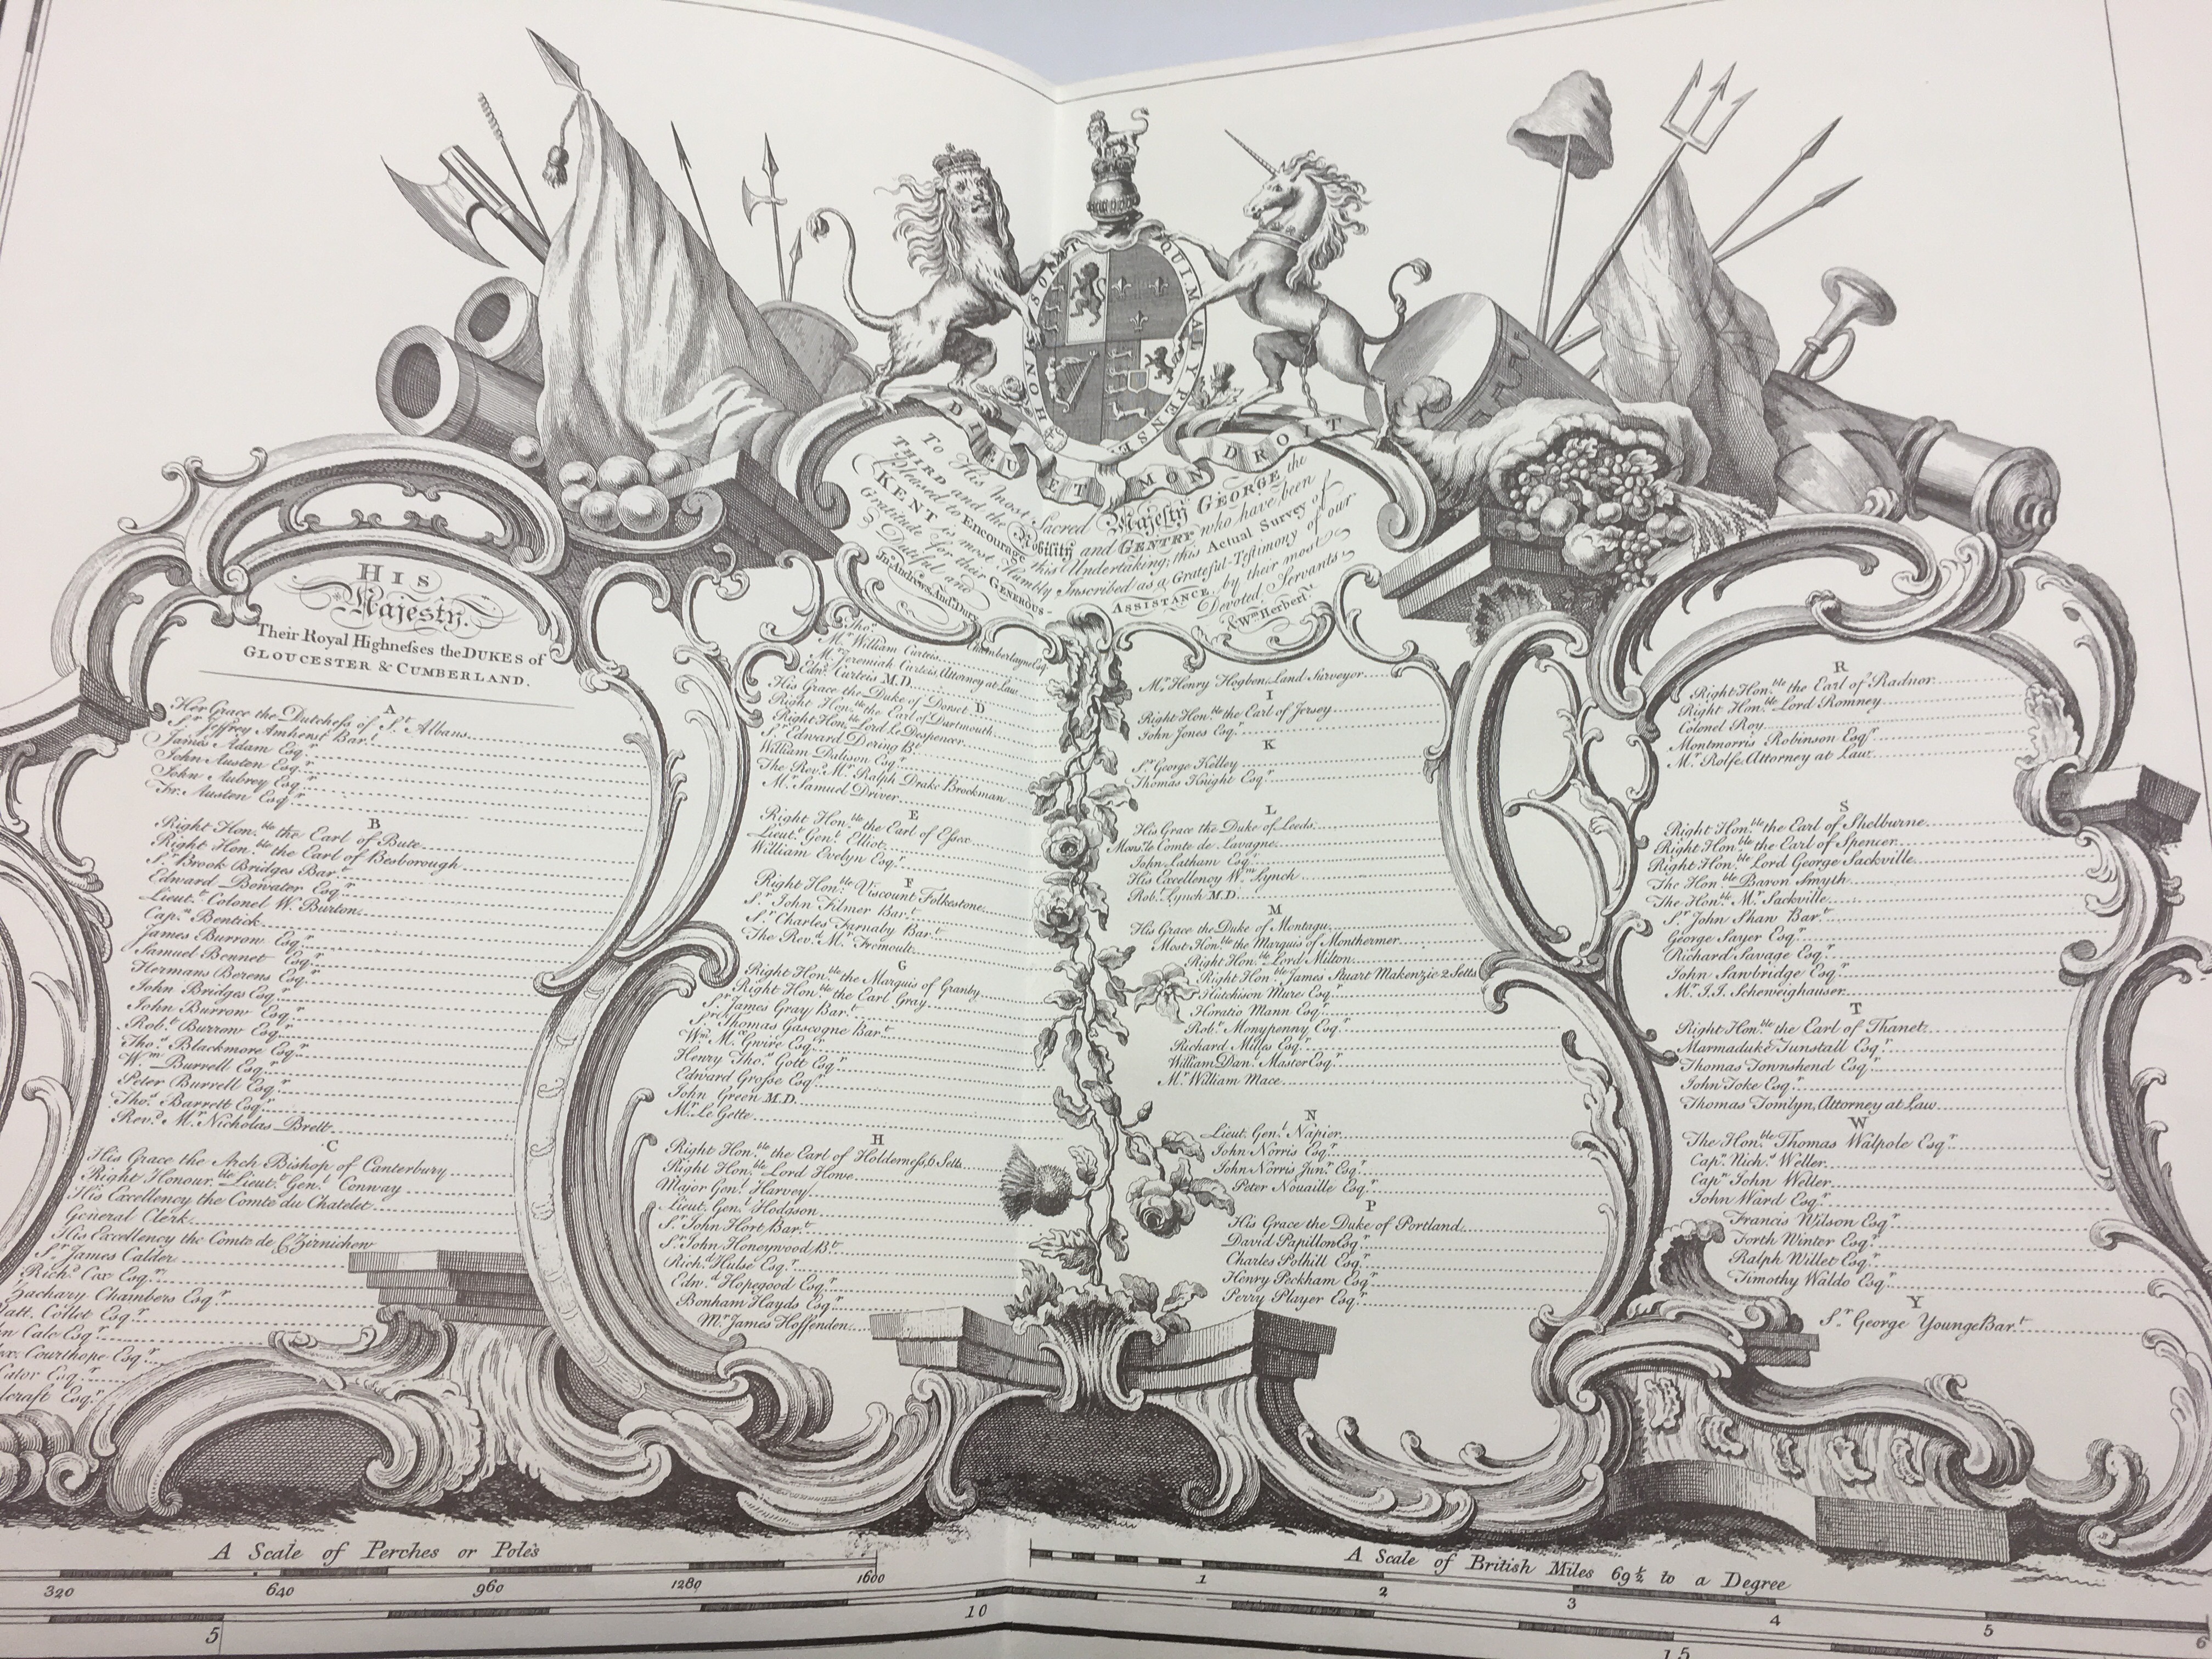 HONI SOIT QUI MAL Y PENSE
DIEU ET MON DROIT
To His most Sacred Majesty GEORGE the
THIRD and the Nobility and GENTRY who have been
Pleased to Encourage this Undertaking; this Actual Survey of
KENT is most Humbly Inscribed as a Grateful Testimony of our
Gratitude for their GENEROUS ASSISTANCE, by their most
Dutiful and Devoted Servants
Jn. Andrews, And. Dury & Wm. Herbert.
HIS
Majesty.
Their Royal Highneſses the DUKES of
GLOUCESTER & CUMBERLAND.
A
Her Grace the Dutcheſs of St. Albans
Sr. Jeffrey Amherst Bart.
James Adam Esqr.
John Austen Esqr.
John Aubrey Esqr.
Fr. Austen Esqr.
B
Right Hon.ble the Earl of Bute
Right Hon.ble the Earl of Besborough
Sr. Brook Bridges Bart.
Edward Bowater Esqr.
Lieut. Colonel W. Burton
Capn. Bentick
James Burrow Esqr.
Samuel Bennet Esqr.
Hermans Berens Esqr.
John Bridges Esqr.
John Burrow Esqr.
Robt. Burrow Esqr.
Thos. Blackmore Esqr.
Wm. Burrell Esqr.
Peter Burrell Esqr.
Thos. Barrett Esqr.
Revd. Mr. Nicholas Brett
C
His Grace the Arch Bishop of Canterbury
Right Honour.ble Lieut. Genl. Conway
His Excellency the Comte du Chatelet
General Clerk
His Excellency the Comte de Czirnichew
Sr. James Calder
Richd. Cox Esqr.
Zachary Chambers Esqr.
Collet Esqr.
Cale Esqr.
Courthope Esqr.
Cator Esqr.
Esqr.
Thos. Chamberlayne Esqr.
Mr. William Curteis
Mr. Jeremiah Curteis, Attorney at Law
Edwd. Curteis M.D.
D
His Grace the Duke of Dorset
Right Hon.ble the Earl of Dartmouth
Right Hon.ble Lord Le Despencer
Sr. Edward Dering Bt.
William Dalison Esqr.
The Rev. Mr. Ralph Drake Brockman
Mr. Samuel Driver
E
Right Hon.ble the Earl of Eſsex
Lieut. Genl. Elliot
William Evelyn Esqr.
F
Right Hon.ble Viscount Folkestone
Sr. John Filmer Bart.
Sr. Charles Farnaby Bart.
The Revd. Mr. Fremoult
G
Right Hon.ble the Marquis of Granby
Right Hon.ble the Earl Gray
Sr. James Gray Bart.
Sr. Thomas Gascogne Bart.
Wm. Mc. Gwire Esqr.
Henry Thos. Gott Esqr.
Edward Groſse Esqr.
John Green M.D.
Mr. Le Gette
H
Right Hon.ble the Earl of Holderneſs, 6 Setts
Right Hon.ble Lord Howe
Major Genl. Harvey
Lieut. Genl. Hodgson
Sr. John Hort Bart.
Sr. John Honeywood Bt.
Richd. Hulse Esqr.
Edwd. Hopegood Esqr.
Bonham Hayds Esqr.
Mr. James Hoffenden
Mr. Henry Hogben, Land Surveyor
I
Right Hon.ble the Earl of Jersey
John Jones Esqr.
K
Sr. George Kelley
Thomas Knight Esqr.
L
His Grace the Duke of Leeds
Monsr. le Comte de Lavagne
John Latham Esqr.
His Excellency Wm. Lynch
Robt. Lynch M.D.
M
His Grace the Duke of Montagu
Most Hon.ble the Marquis of Monthermer
Right Hon.ble Lord Milton
Right Hon.ble James Stuart Makenzie 2 Setts
Hutchison Mure Esqr.
Horatio Mann Esqr.
Robt. Monypenny Esqr.
Richard Mills Esqr.
William Danl. Master Esqr.
Mr. William Mace
N
Lieut. Genl. Napier
John Norris Esqr.
John Norris Junr. Esqr.
Peter Nouaille Esqr.
P
His Grace the Duke of Portland
David Papillon Esqr.
Charles Polhill Esqr.
Henry Peckham Esqr.
Perry Player Esqr.
R
Right Hon.ble the Earl of Radnor
Right Hon.ble Lord Romney
Colonel Roy
Montmorris Robinson Esqr.
Mr. Rolfe Attorney at Law
S
Right Hon.ble the Earl of Shelburne
Right Hon.ble the Earl of Spencer
Right Hon.ble Lord George Sackville
The Hon.ble Baron Smyth
The Hon.ble Mr. Sackville
Sr. John Shaw Bart.
George Sayer Esqr.
Richard Savage Esqr.
John Sawbridge Esqr.
Mr. J.J. Scheweighauser
T
Right Hon.ble the Earl of Thanet
Marmaduke Tunstall Esqr.
Thomas Townshend Esqr.
John Toke Esqr.
Thomas Tomlyn, Attorney at Law
W
The Hon.ble Thomas Walpole Esqr.
Capn. Nichs. Weller
Capn. John Weller
John Ward Esqr.
Francis Wilson Esqr.
Forth Winter Esqr.
Ralph Willet Esqr.
Timothy Waldo Esqr.
Y
Sr. George Younge Bart.
A Scale of Perches or Poles
320 640 960 1280 1600
A Scale of British Miles 69½ to a Degree
1 2 3 4 5 6
5 10 15